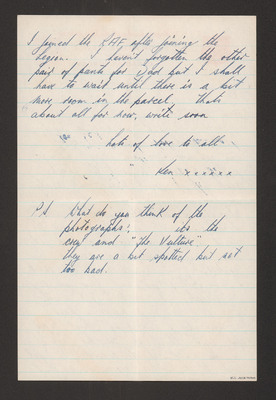 I joined the RAF after joining the
legion. I haven't forgotten the other
pair of pants for Dad but I shall
have to wait until there is a bit
more room in the parcel thats
about all for now, write soon
hats of love to all
Ken xxxxxx
PS What do you think of the
photographs? its the
crew and "The Vulture"
they are a bit spotted but not
too bad.